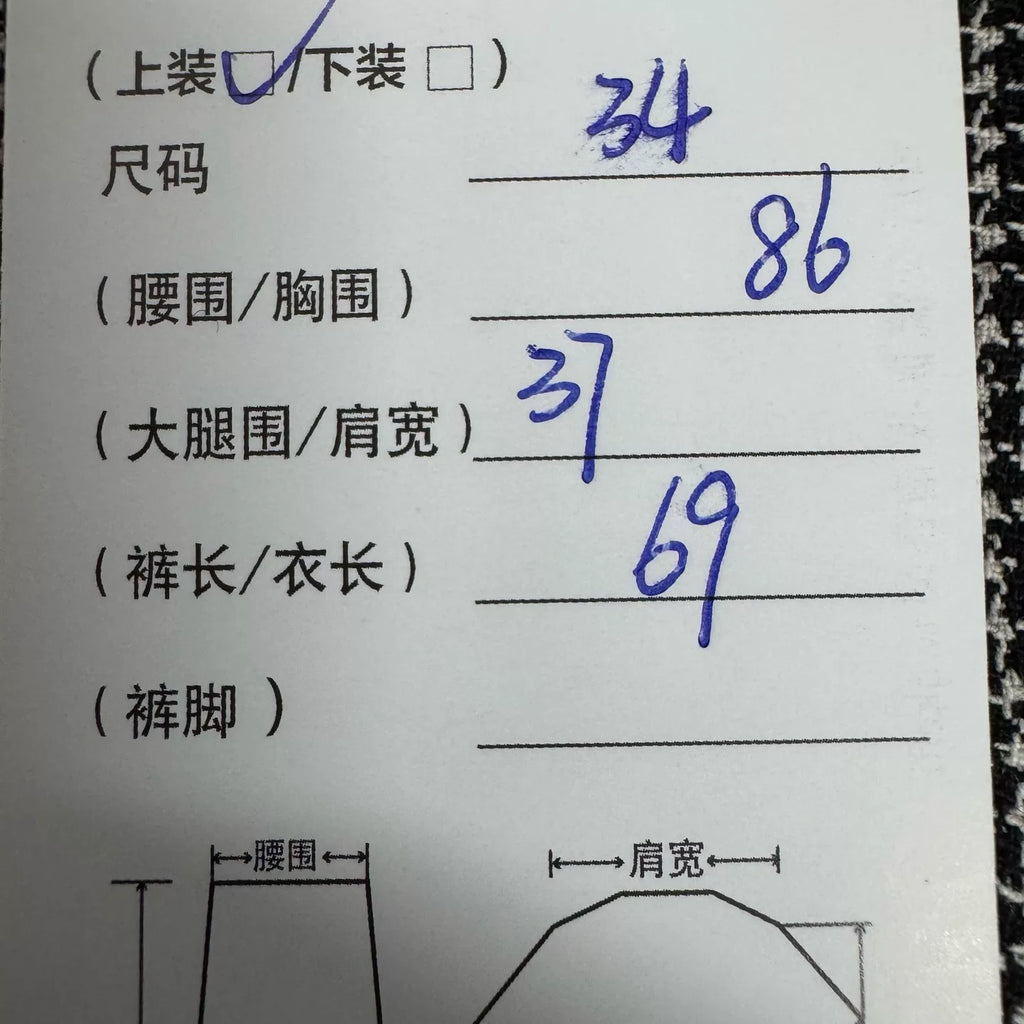 (上装☑/下装□)
尺码 34
(腰围/胸围) 86
(大腿围/肩宽) 37
(裤长/衣长) 69
(裤脚)
腰围 肩宽